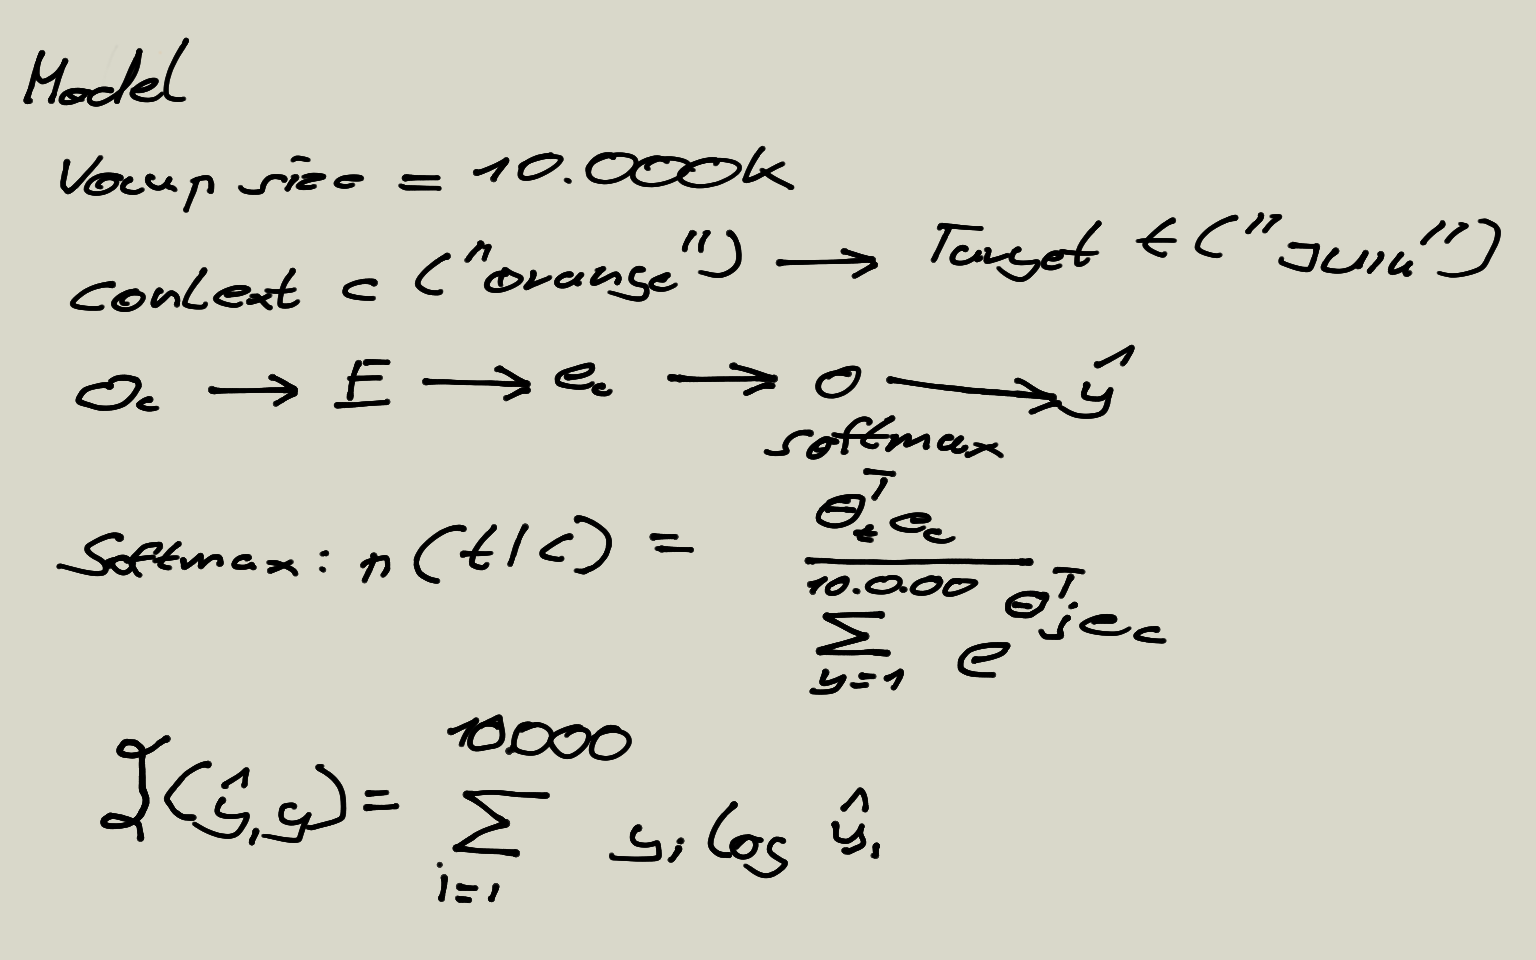 Model
Vocup size = 10.000k
context c ("orange") → Target t ("juiu")
Oc → E → ec → o → ŷ
softmax
Softmax: p(t|c) = θtᵀ ec / Σ y=1 10.0.00 e θjᵀ ec
L(ŷ, y) = Σ i=1 10.000 yi log ŷi